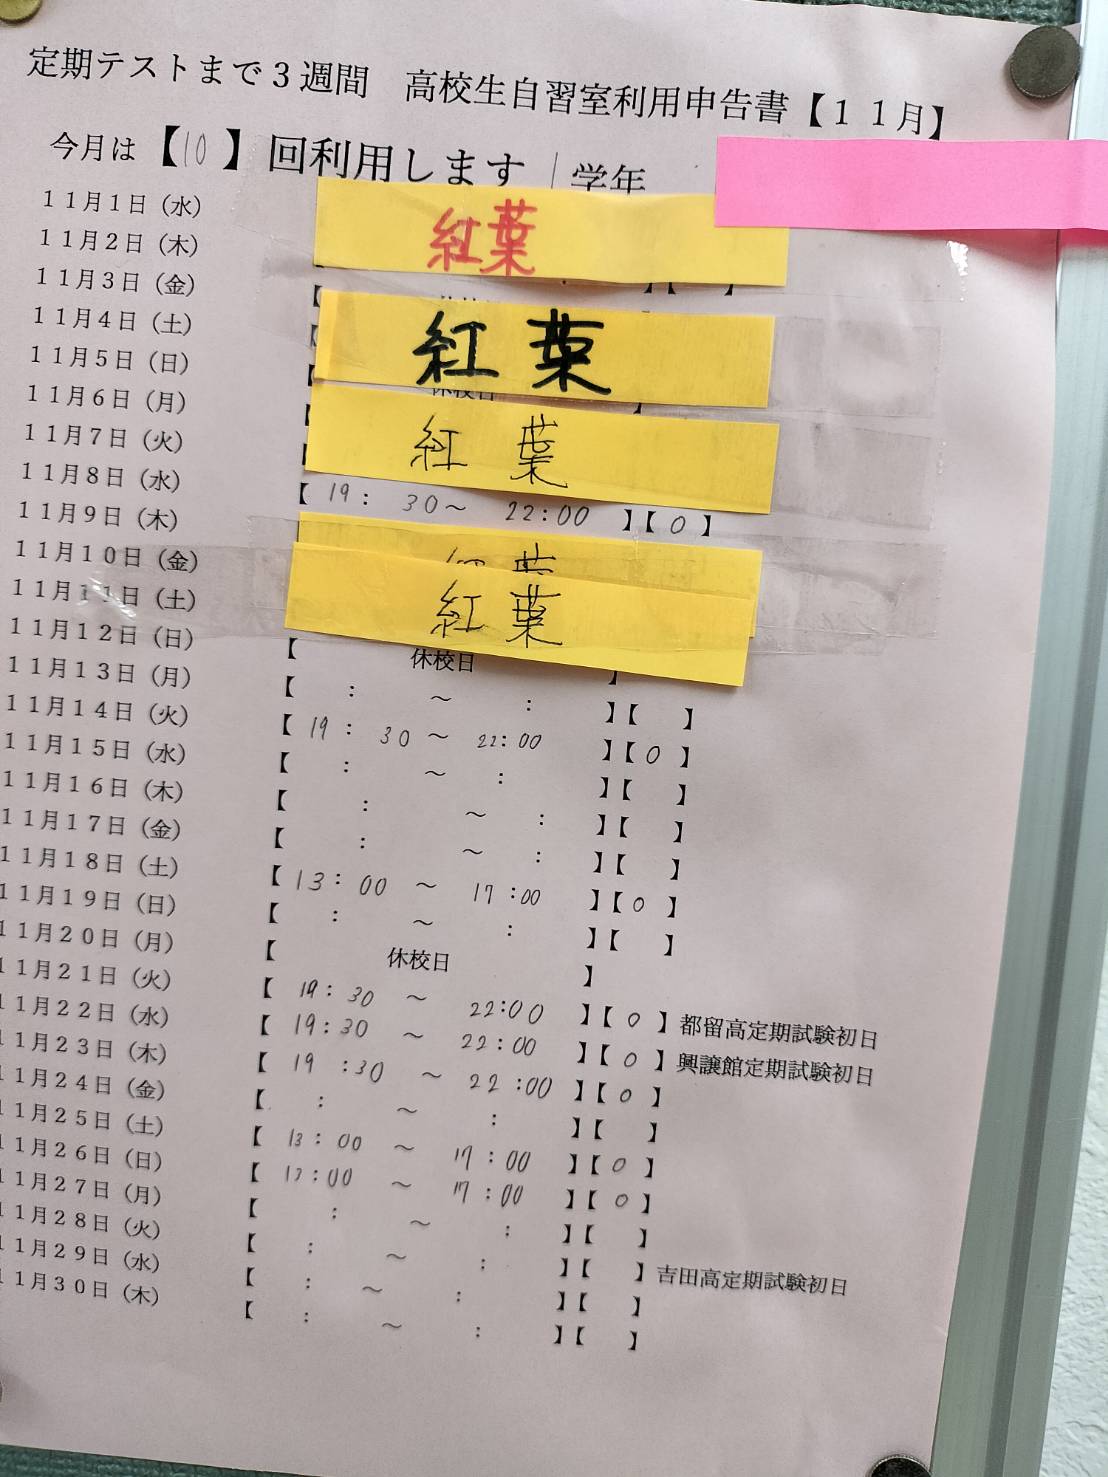 定期テストまで３週間　高校生自習室利用申告書【１１月】
今月は【10】回利用します　学年
１１月１日（水）
紅葉
１１月２日（木）
１１月３日（金）
１１月４日（土）
紅葉
１１月５日（日）
休校日
１１月６日（月）
１１月７日（火）
紅葉
１１月８日（水）
【 19： 30～ 22:00 】【 0 】
１１月９日（木）
１１月１０日（金）
紅葉
１１月１１日（土）
紅葉
１１月１２日（日）
【 休校日 】
１１月１３日（月）
【 ： ～ ： 】【 】
１１月１４日（火）
【 19： 30～ 22:00 】【 0 】
１１月１５日（水）
【 ： ～ ： 】【 】
１１月１６日（木）
【 ： ～ ： 】【 】
１１月１７日（金）
【 ： ～ ： 】【 】
１１月１８日（土）
【 13：00 ～ 17：00 】【 0 】
１１月１９日（日）
【 ： ～ ： 】【 】
１１月２０日（月）
【 休校日 】
１１月２１日（火）
【 19：30 ～ 22:00 】【 0 】都留高定期試験初日
１１月２２日（水）
【 19:30 ～ 22:00 】【 0 】興譲館定期試験初日
１１月２３日（木）
【 19：30 ～ 22：00 】【 0 】
１１月２４日（金）
【 ： ～ ： 】【 】
１１月２５日（土）
【 13：00 ～ 17：00 】【 0 】
１１月２６日（日）
【 13:00 ～ 17：00 】【 0 】
１１月２７日（月）
【 ： ～ ： 】【 】
１１月２８日（火）
【 ： ～ ： 】【 】吉田高定期試験初日
１１月２９日（水）
【 ： ～ ： 】【 】
１１月３０日（木）
【 ： ～ ： 】【 】